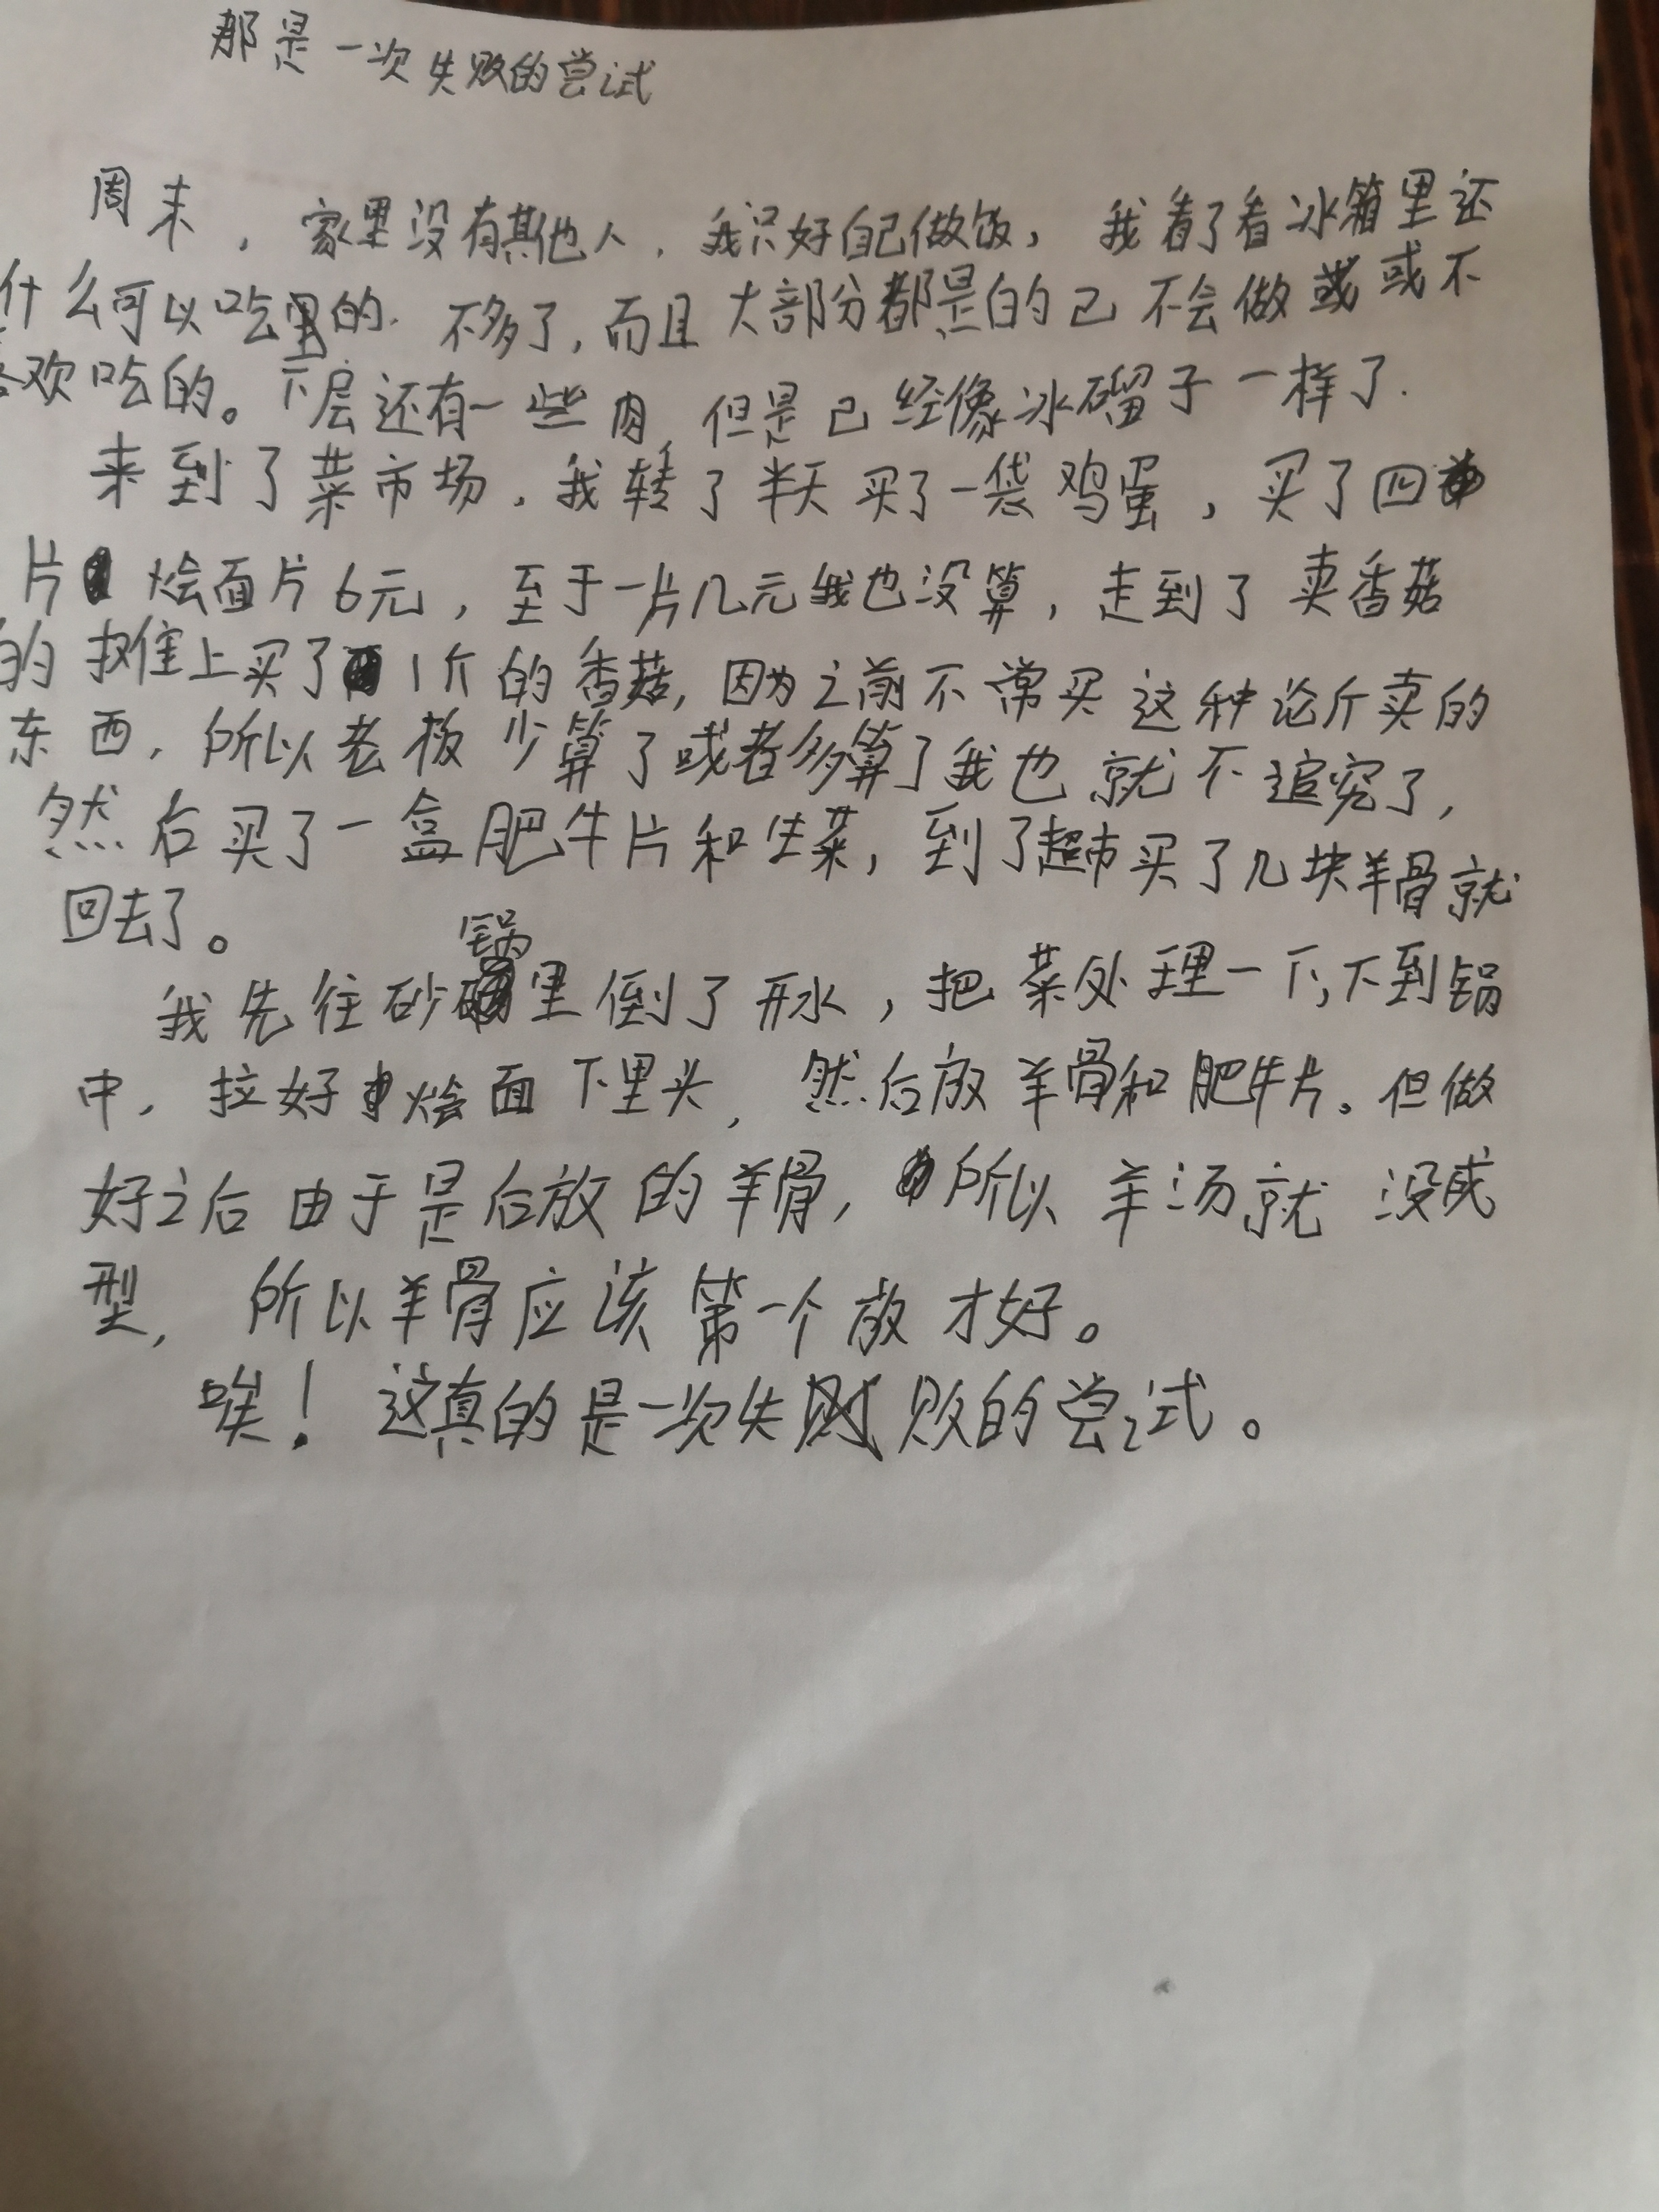 那是一次失败的尝试
周末，家里没有其他人，我只好自己做饭，我看了看冰箱里还
什么可以吃的。不多了，而且大部分都是的己不会做或不
欢吃的。下层还有一些肉，但是已经像冰磂子一样了.
来到了菜市场，我转了半天买了一袋鸡蛋，买了四
片烩面片6元，至于一片几元我也没算，走到了卖香菇
的摊上买了1斤的香菇，因为之前不常买这种论斤卖的
东西，所以老板少算了或者多算了我也就不追究了，
然后买了一盒肥牛片和生菜，到了超市买了几块羊骨就
回去了。
我先往砂锅里倒了开水，把菜处理一下，下到锅
中，拉好烩面下里头，然后放羊骨和肥牛片。但做
好之后由于是后放的羊骨，所以羊汤就没成
型，所以羊骨应该第一个放才好。
唉！这真的是一次失败的尝试。